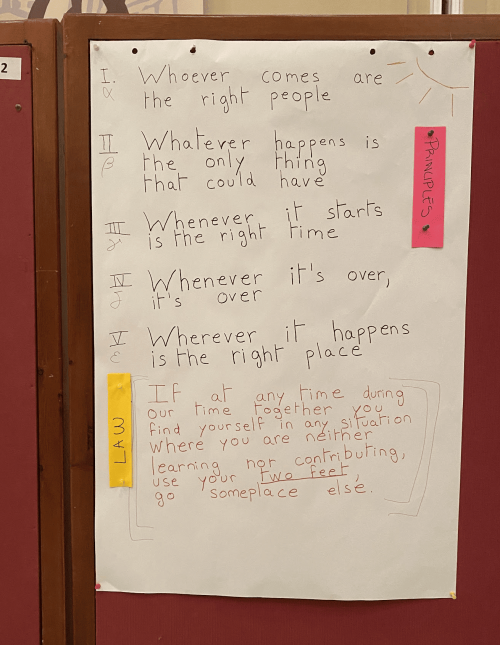 2
I. Whoever comes are
α the right people
II Whatever happens is
β the only thing
that could have
III Whenever it starts
γ is the right time
IV Whenever it's over,
δ it's over
V Wherever it happens
ε is the right place
PRINCIPLES
If at any time during
our time together you
find yourself in any situation
where you are neither
learning nor contributing,
use your two feet,
go someplace else.
LAW